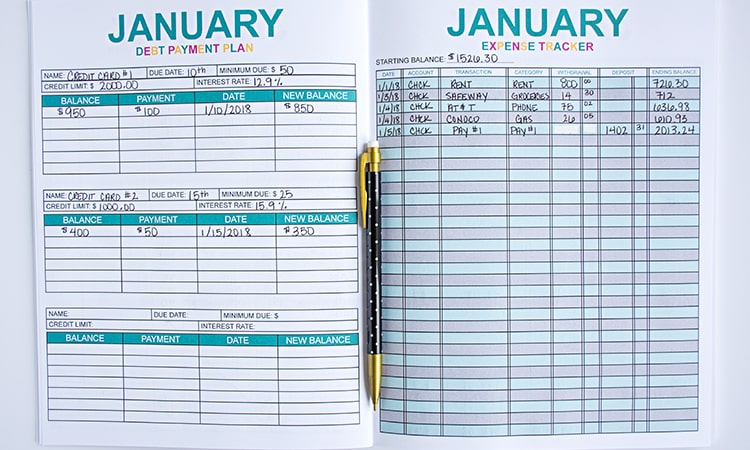 JANUARY
DEBT PAYMENT PLAN
NAME: CREDIT CARD #1 DUE DATE: 10th MINIMUM DUE: $ 50
CREDIT LIMIT: $ 2000.00 INTEREST RATE: 12.9%
BALANCE PAYMENT DATE NEW BALANCE
$950 $100 1/10/2018 $850
NAME: CREDIT CARD #2 DUE DATE: 15th MINIMUM DUE: $ 25
CREDIT LIMIT: $ 1000.00 INTEREST RATE: 15.9%
BALANCE PAYMENT DATE NEW BALANCE
$400 $50 1/15/2018 $350
NAME: DUE DATE: MINIMUM DUE: $
CREDIT LIMIT: INTEREST RATE:
BALANCE PAYMENT DATE NEW BALANCE
JANUARY
EXPENSE TRACKER
STARTING BALANCE: $1526.30
DATE ACCOUNT TRANSACTION CATEGORY WITHDRAWAL DEPOSIT ENDING BALANCE
1/1/18 CHCK RENT RENT 800 00 726.30
1/3/18 CHCK SAFEWAY GROCERIES 14 30 712
1/4/18 CHCK AT&T PHONE 75 02 636.98
1/4/18 CHCK CONOCO GAS 26 05 610.93
1/5/18 CHCK PAY #1 PAY #1 1402 31 2013.24